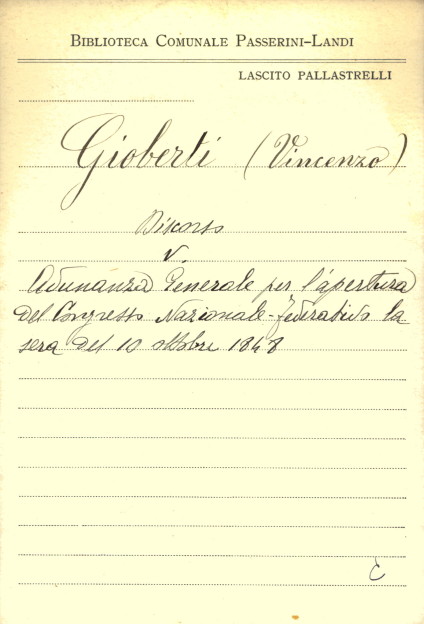 BIBLIOTECA COMUNALE PASSERINI-LANDI
LASCITO PALLASTRELLI
Gioberti (Vincenzo)
Discorso
v.
Adunanza Generale per l'apertura
del Congresso Nazionale-Federativo la
sera del 10 ottobre 1848
C